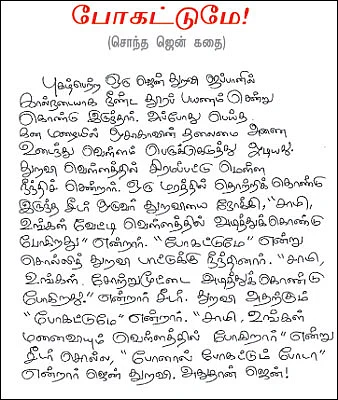 போகட்டுமே!
(சொந்த ஜென் கதை)
புகழ்பெற்ற ஒரு ஜென் துறவி ஜப்பானில்
கால்நடையாக நீண்ட தூரப் பயணம் சென்று
கொண்டு இருந்தார். அப்போது பெய்த
கன மழையில் தலைமை அணை
உடைந்து வெள்ளம் பெருக்கெடுத்து ஓடியது.
துறவி வெள்ளத்தில் சிறைப்பட்டு மெள்ள
நீந்திச் சென்றார். ஒரு மரத்தில் தொற்றிக் கொண்டு
இருந்த சீடர் ஒருவர் துறவியை நோக்கி, "சாமி,
உங்கள் வேட்டி வெள்ளத்தில் அடித்துக்கொண்டு
போகிறது" என்றார். "போகட்டுமே" என்று
சொல்லித் துறவி பாட்டுக்கு நீந்தினார். "சாமி,
உங்கள் சோற்றுமூட்டை அடித்துக்கொண்டு
போகிறது." என்றார் சீடர். துறவி அதற்கும்
"போகட்டுமே" என்றார். "சாமி, உங்கள்
மனைவியும் வெள்ளத்தில் போகிறார்" என்று
சீடர் சொல்ல, "போனால் போகட்டும் போடா"
என்றார் ஜென் துறவி. அதுதான் ஜென்!